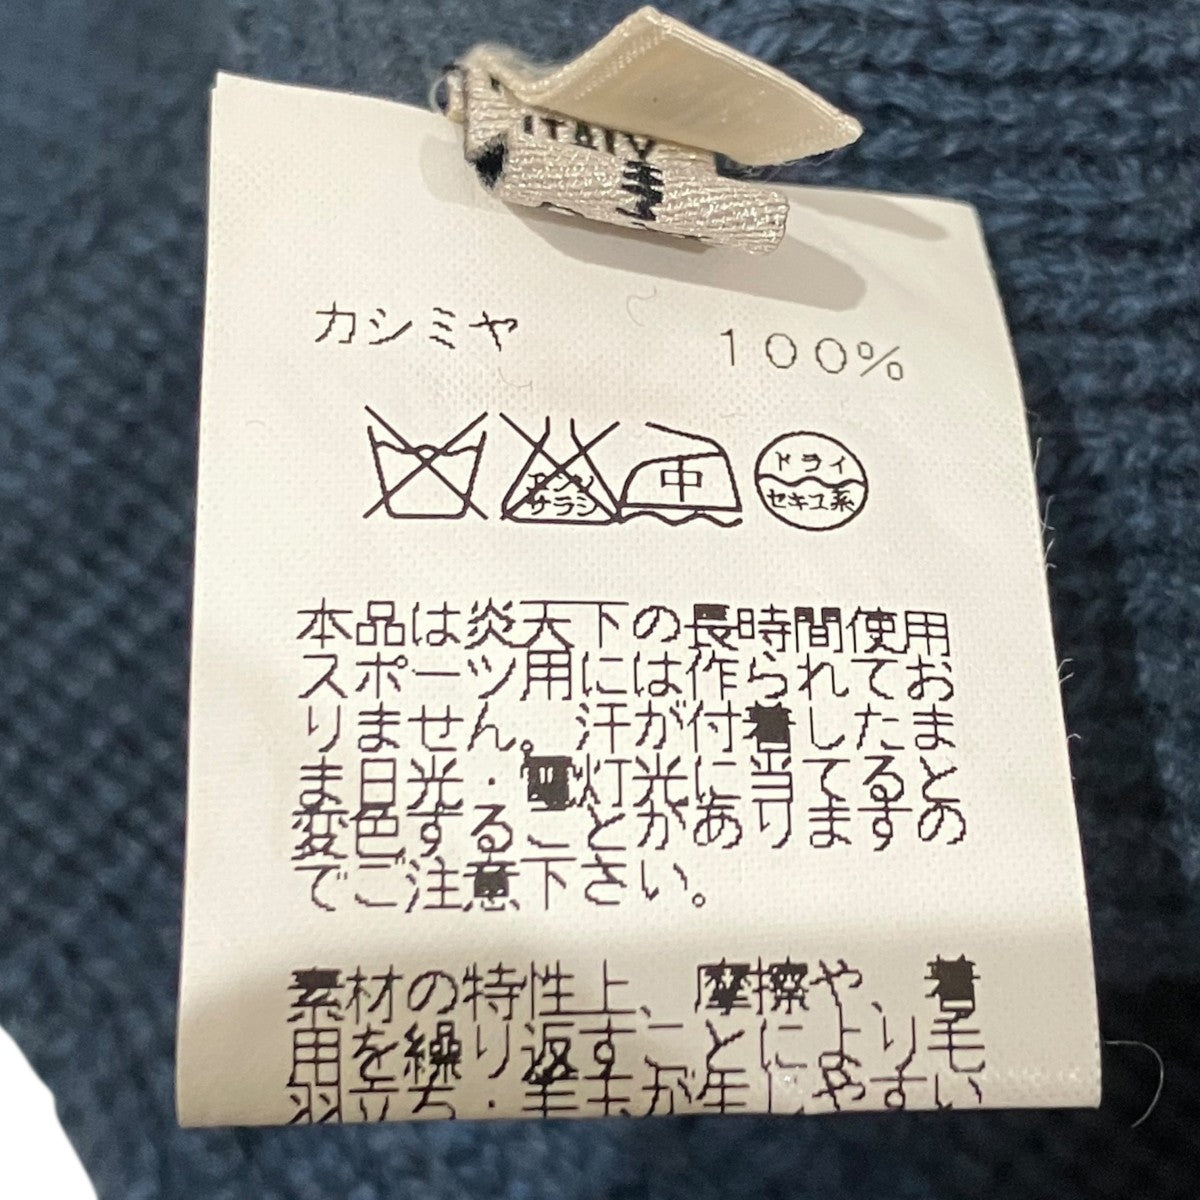 ITALY
カシミヤ 100%
エンソ
サラシ
中
ドライ
セキユ系
本品は炎天下の長時間使用
スポーツ用には作られてお
りません。汗が付着したま
ま日光・電灯光に当てると
変色することがありますの
でご注意下さい。
素材の特性上、摩擦や、着
用を繰り返すことにより毛
羽立ち・毛玉が生じやすい